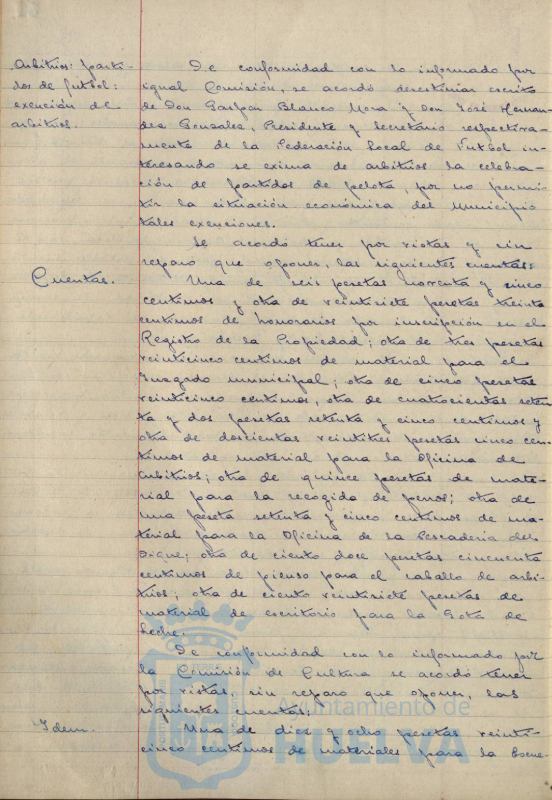 Arbitrios: parti-
dos de futbol:
exención de
arbitrios.
De conformidad con lo informado por
igual Comisión, se acordó desestimar escrito
de Don Gaspar Blanco Mora y Don José Hernan-
dez Gonzalez, Presidente y Secretario respectiva-
mente de la Federación Local de Futbol in-
teresando se exima de arbitrios la celebra-
ción de partidos de pelota, por no permi-
tir la situación económica del Municipio
tales exenciones.
Se acordó tener por vistas y sin
reparo que oponer, las siguientes cuentas:
Cuentas.
Una de seis pesetas noventa y cinco
centimos y otra de veintisiete pesetas treinta
centimos de honorarios por inscripción en el
Registro de la Propiedad; otra de tres pesetas
veinticinco centimos de material para el
Juzgado municipal; otra de cinco pesetas
veinticinco centimos, otra de cuatrocientas seten-
ta y dos pesetas setenta y cinco centimos y
otra de doscientas veintitres pesetas cinco cen-
timos de material para la Oficina de
arbitrios; otra de quince pesetas de mate-
rial para la recogida de perros; otra de
una peseta setenta y cinco centimos de ma-
terial para la Oficina de la Pescaderia del
Dique; otra de ciento doce pesetas cincuenta
centimos de pienso para el caballo de arbi-
trios; otra de ciento veintisiete pesetas de
material de escritorio para la Gota de
Leche.
De conformidad con lo informado por
la Comisión de Cultura se acordó tener
por vistas, sin reparo que oponer, las
siguientes cuentas:
Idem.
Una de diez y ocho pesetas veinti-
cinco centimos de materiales para la Escue-
Ayuntamiento de
HUELVA